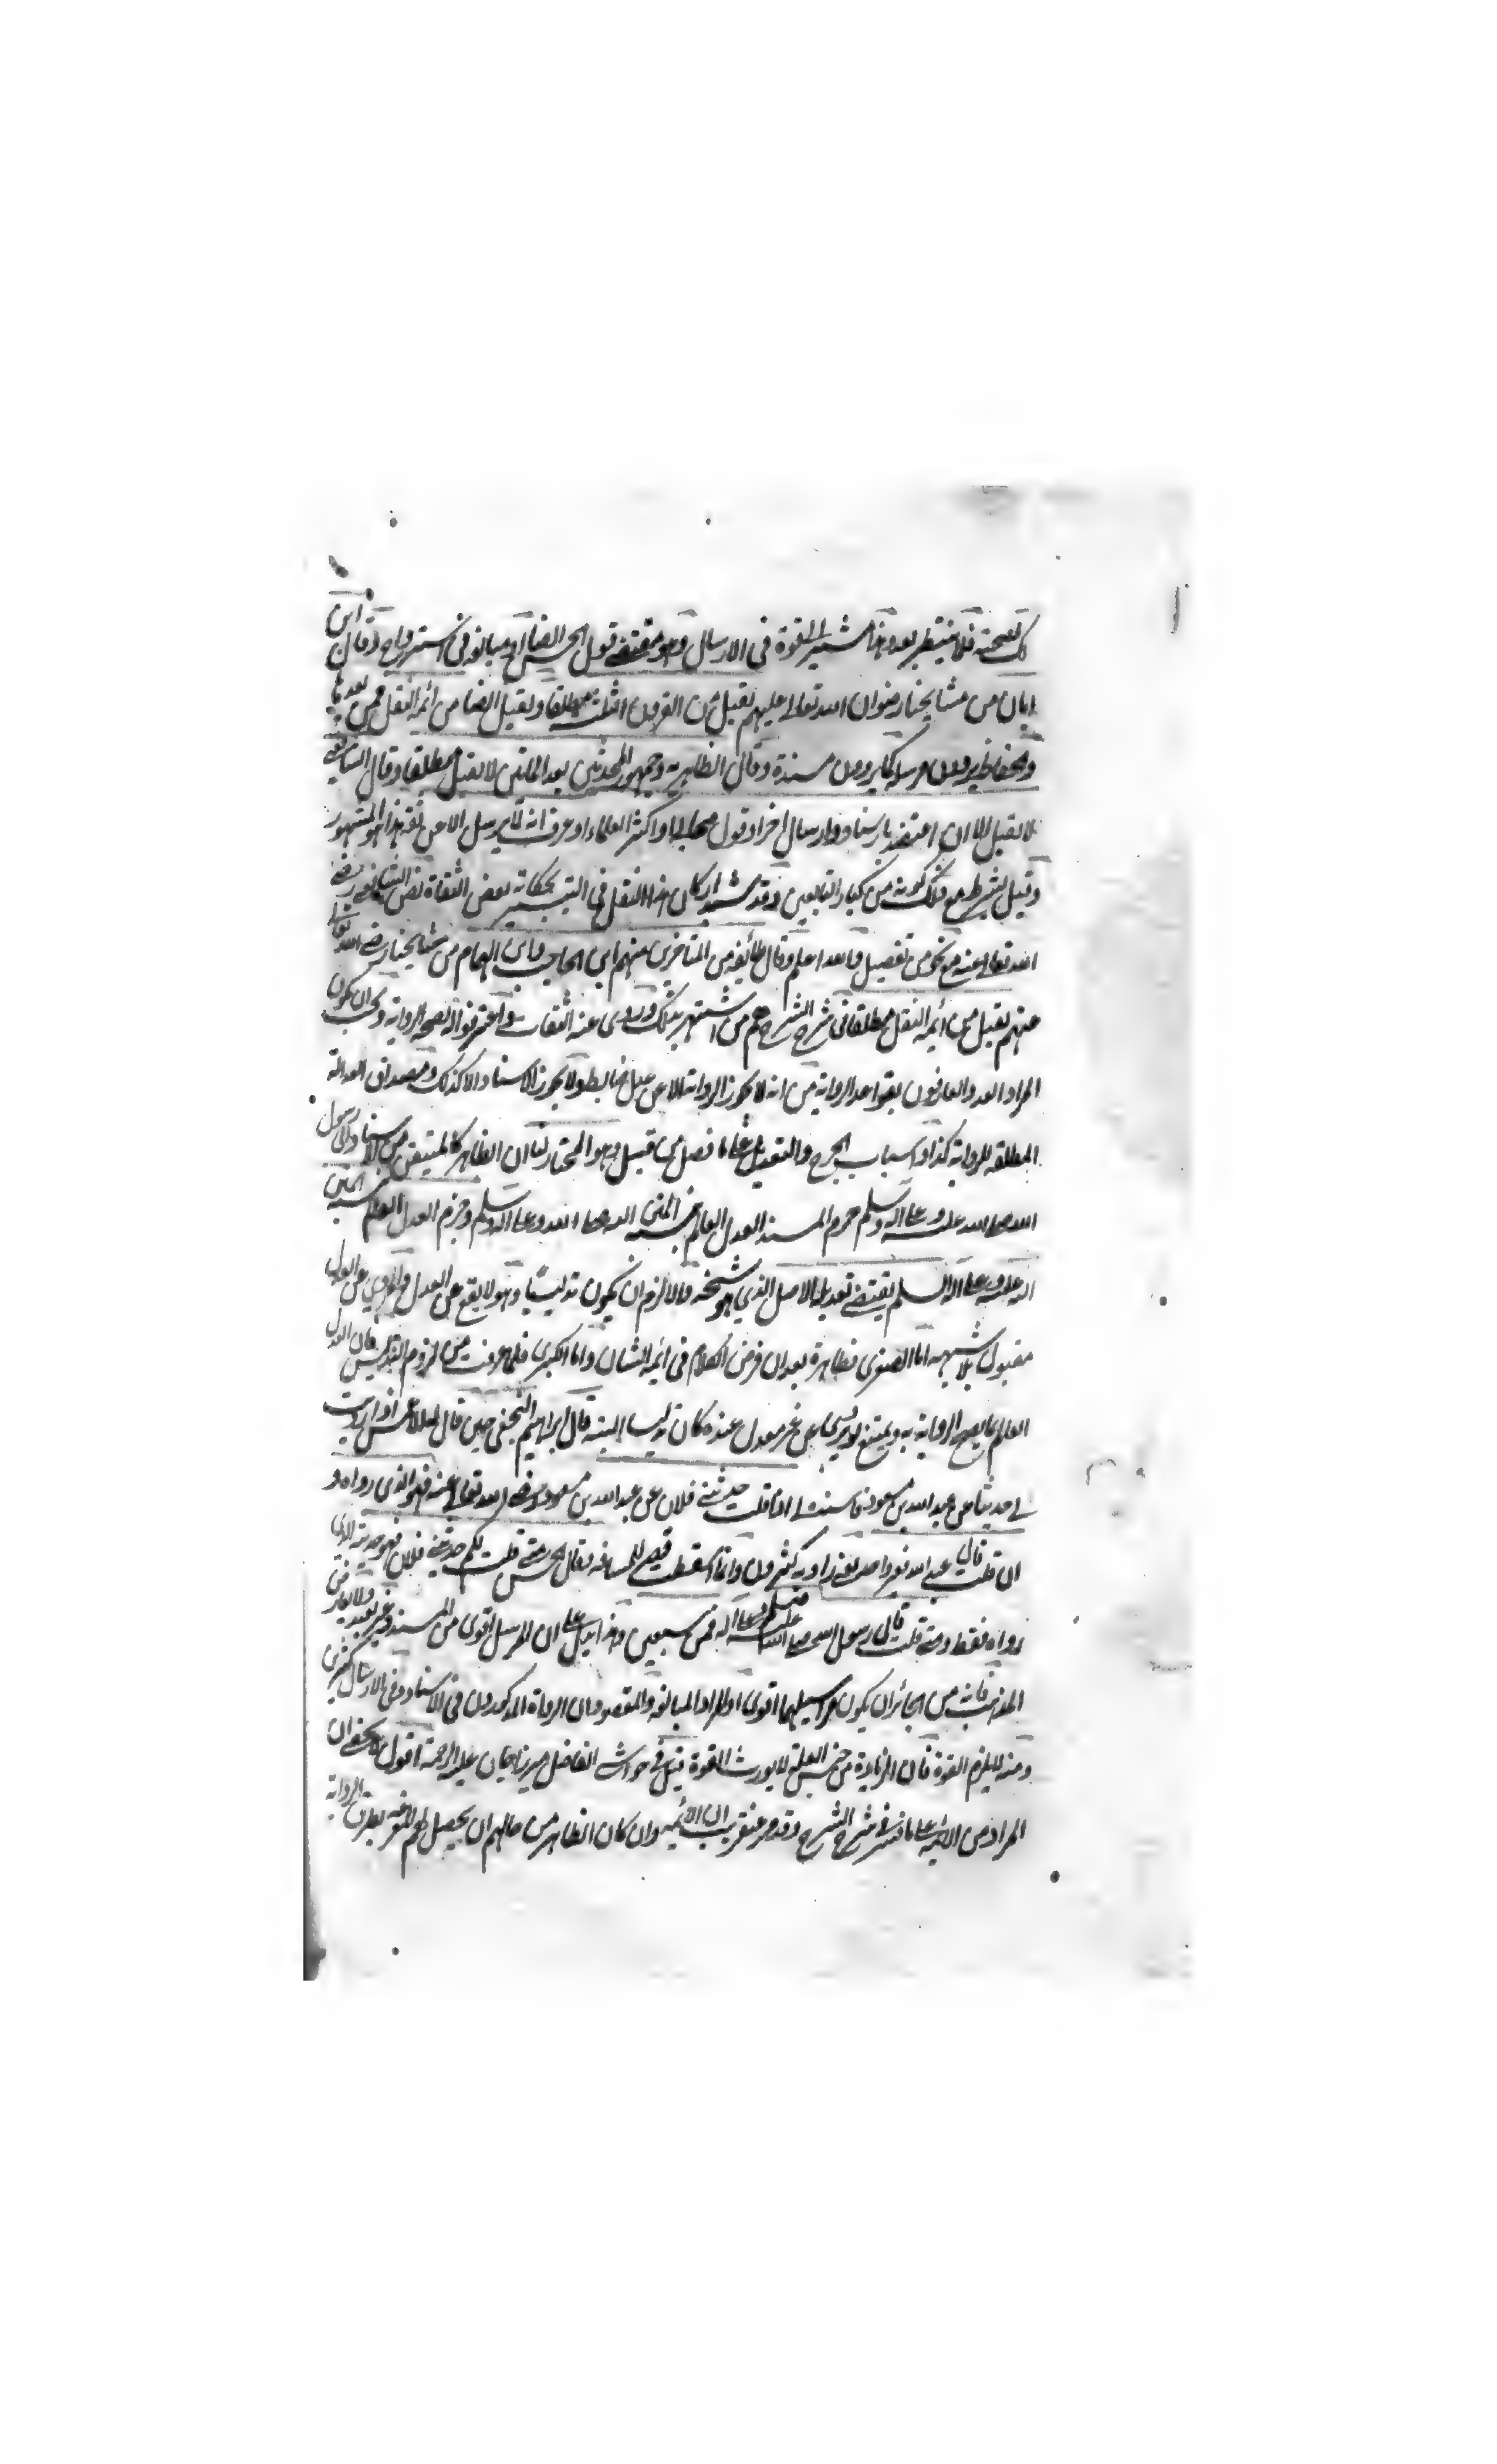 لك لصحته فلا ينتظر بعد وهذا مشير الى القوة في الارسال وهو مقتضى قول الحسن ايضا او مبالغة في استرواح وقال ابن
ابان من مشايخنا رضوان الله تعالى عليهم يقبل من القرون الثلثة مطلقا ويقبل ايضا من ائمة النقل فمن بعدها
والحفاظ يروون مرسله كما يروون مسنده وقال الظاهرية وجمهور المحدثين بعد المائتين لا يقبل مطلقا وقال الشافعي
لا يقبل الا ان اعتضد باسناد او ارسال آخر او قول صحابي او اكثر العلماء او عرف انه لا يرسل الا عن ثقة هذا هو المشهور
وقيل يشترط مع ذلك كونه من كبار التابعين وقد شيد اركان هذا النقل في التيسير بحكاية بعض الثقاة نص الشافعي رضي
الله تعالى عنه مع نحو من تفصيل والله اعلم وقال طائفة من المتاخرين منهم ابن الحاجب وابن الهمام من مشايخنا رضي الله تعالى
عنهم يقبل من ائمة النقل مطلقا في شرح الشرح هم من اشتهر بذلك وروى عنه الثقات واعترفوا له بصحة الرواية ويجب ان يكون
المراد العدول العارفون بقواعد الرواية من انه لا يجوز الرواية الا عن عدل ضابط ولا يجوز الاسناد الا كذلك ومصداق العدالة
المطلقة للرواية كذا واسباب الجرح والتعديل على ما فصل من قبل وهو المختار لنا ان الظاهر كالمتيقن من الاسناد الى رسول
الله صلى الله عليه وعلى اله وسلم جزم المسند العدل العالم بنسبة المتن اليه صلى الله وعلى اله وسلم وجزم العدل العالم بنسبة المتن
اليه عليه وعلى اله السلم يقتضي تعديله الاصل الذي هو شيخه والا لزم ان يكون تدليسا وهو لا يقع عن العدل والمروي عن العدل
مقبول بلا شبهة اما الصغرى فظاهرة بعد ان فرض الكلام في ائمة الشان واما الكبرى فلما عرفت من لزوم التدليس فان العدل
العالم بما يصح الرواية به ويمتنع لو يروى عن غير معدل عنده كان تدليسا البتة قال ابراهيم النخعي حين قال له الاعمش اذا رويت
لي حديثا عن عبد الله بن مسعود فاسنده لي اذا قلت حدثني فلان عن عبد الله بن مسعود رضي الله تعالى عنه فهو الذي رواه و
ان قلت قال عبد الله فغير واحد يعني رواته كثيرون وانما اسقطت للمسافة وقال الحسن متى قلت لكم حدثني فلان فهو حديثه الذي
رواه فقط ومتى قلت قال رسول الله صلى الله عليه وعلى اله وسلم فمن سبعين وهذا يدل على ان المرسل اقوى من المسند وغير بعيد ولا يعارض
المذهب فانه من الجائز ان يكون مراسيلهما اقوى او المراد المبالغة والمقصود ان الرواة المذكورون في الاسناد وفي الارسال كثيرين
ومنه لا يلزم القوة فان الزيادة من جنس العلة لا يورث القوة قيل في حواشي الفاضل ميرزا جان عليه الرحمة اقول لا يخفى ان
المراد من الائمة على ما فسر في شرح الشرح وقد مر عنقريب ان الائمة وان كان الظاهر من حالهم ان يحصل لهم المعرفة بطرق الرواية